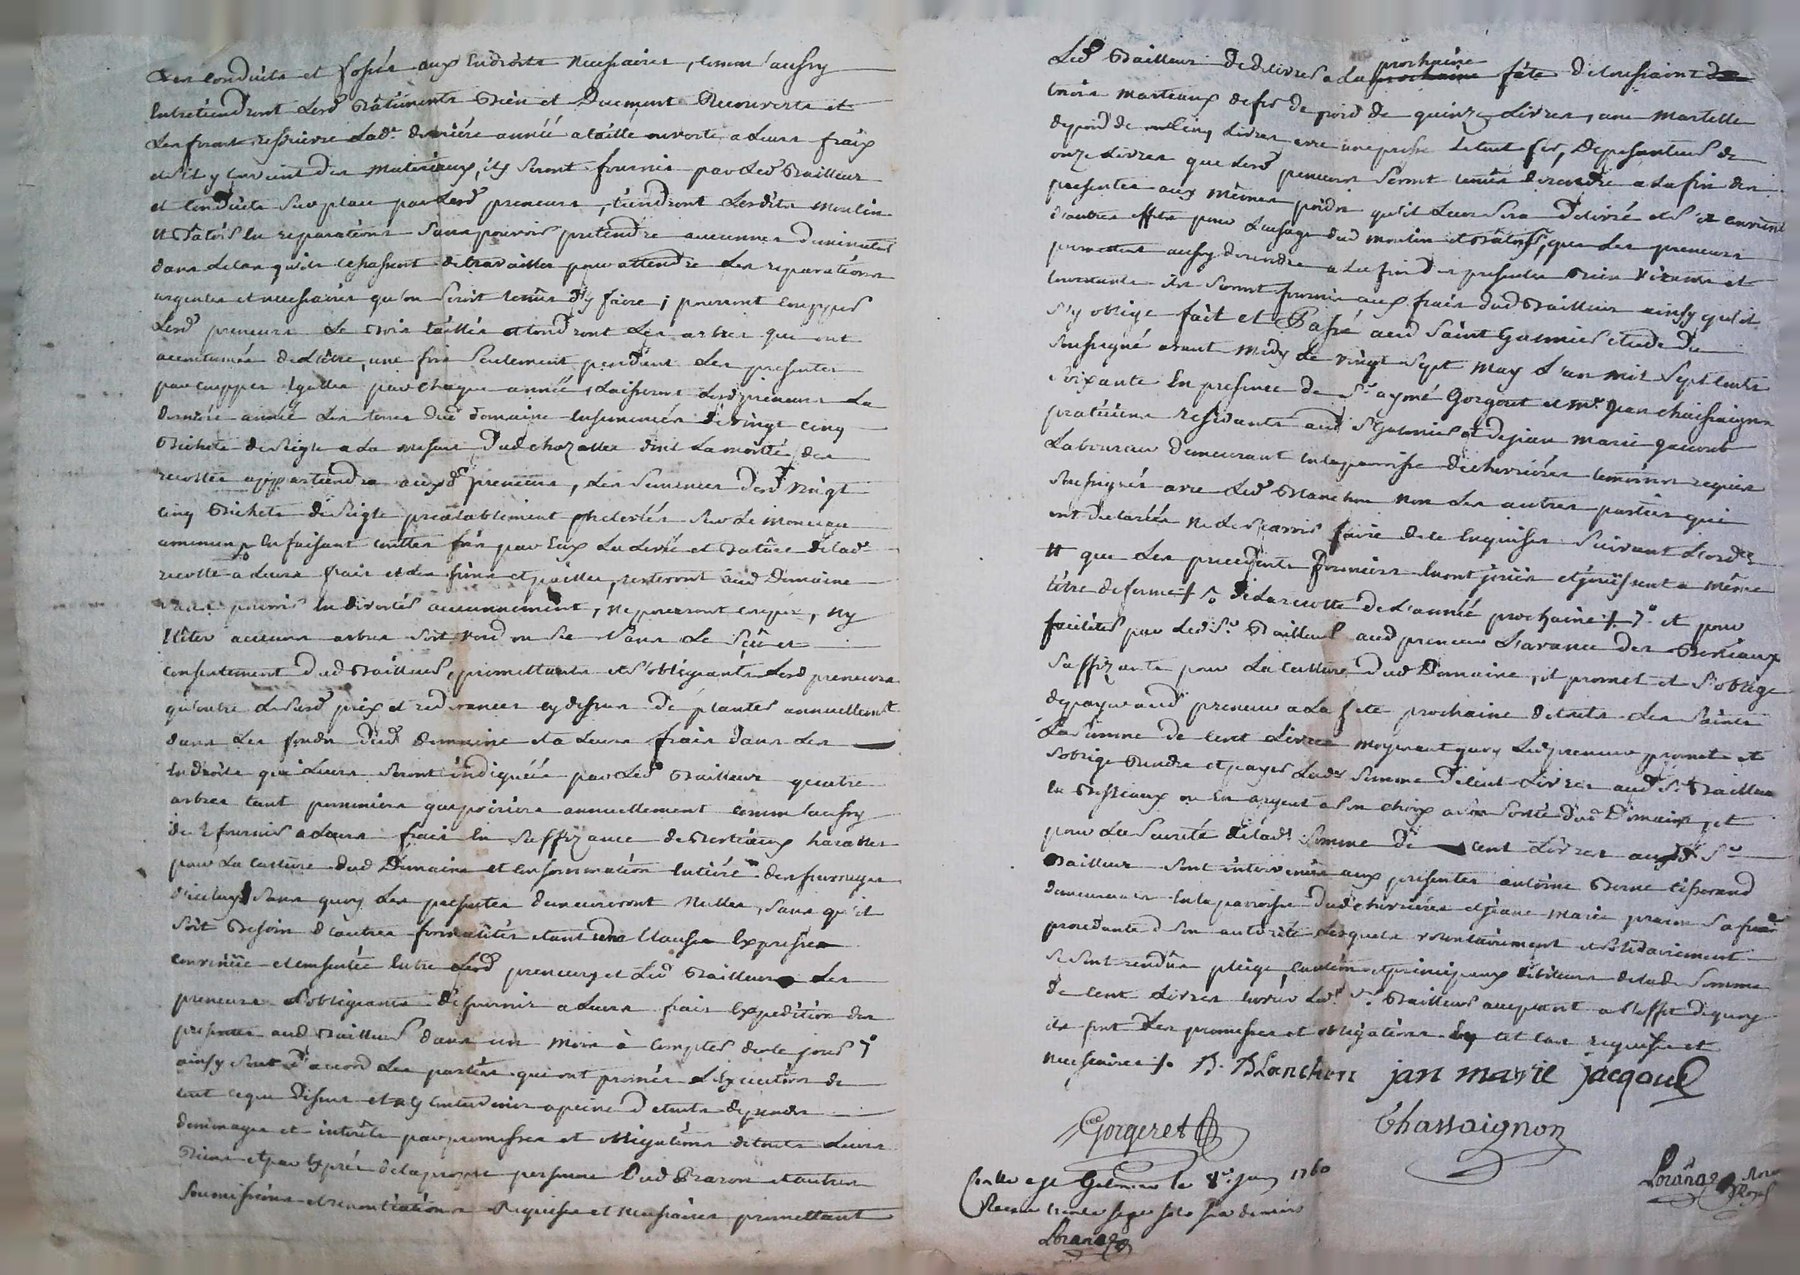 des conduits et fossés aux Endroits Necessaires, comm'aussy
Entretiendront Lesd Bâtiments Bien et Duement Recouverts et
Les feront ressuivre Lad. derniére année a taille ouverte a Leurs fraix
et s'il y Convient des materiaux, ils seront fournis par Led. Bailleur
et conduits sur place par Lesd. preneurs, tiendront Lesdits moulin
et Batoir En reparations sans pouvoir pretendre aucunnes diminutions
dans le cas qu'ils cessassent de travailler pour attendre Les reparations
urgentes et necessaires qu'on seroit tenus d'y faire; pourront Coupper
Lesd. preneurs Le Bois taillis et tondront Les arbres qui ont
accoutumés de L'être une fois seulement pendant Les presentes
par chaque année, Laisseront Lesd preneurs La
derniere année Les terres dud. domaine Ensemencées de vingt cinq
Bichets de seigle a La mesure Dud chazelles dont La moitié des
recoltes appartiendra auxd. preneurs, Les semences Desd. vingt
cinq Bichets de seigle préalablement prelevées sur Le monceau
commun En faisant couller frés par Eux La Levée et Bature de lad.
recolte a Leurs frais et Les foins et pailles, resteront aud Domaine
sans pouvoir En divertir aucunnement, Ne pourront Couper, Ny
Etêter aucuns arbres soit verd ou sec sans Le sçu et
consentement Dud Bailleur, promettants et s'obligeants Lesd preneurs
qu'outre Lesd. prix et redevances cy dessus de planter annuellement
dans Les fonds Dud. Domaine et a Leurs frais dans Les
Endroits qui Leurs seront indiqués par Led. Bailleur quatre
arbres tant pommiers que poiriers annuellement comm'aussy
de fournir a Leurs frais En suffizance de Bestiaux harables
pour La Culture dud Domaine et Consommation Entiére des fourrages
d'iceluy Sans quoy Les presentes demeureront Nulles, sans qu'il
soit Besoin d'autres formalités etant une Clause Expresse
convenüe et consentie Entre Lesd. preneurs et Led. Bailleur Les
preneurs s'obligeants de fournir a Leurs frais Expedition des
presentes aud Bailleur dans un mois à compter de ce jour
ainsy sont d'accord Les parties qui ont promis L'Execution de
tout ce que Dessus et d'y Contrevenir a peine de touts depends
dommages et interêts par promesses et obligations de touts Leurs
Biens et par Exprés de la propre personne Dud Brazon et autres
soumissions et renontiations Requises et Necessaires promettant
Led. Bailleur De delivrer a La prochaine fête de toussaint
trois marteaux de fer de poid de quinze Livres, une martelle
de poid de Cinq Livres avec une presse Le tout fer, De pesanteur de
onze Livres que Lesd. preneurs seront tenus de rendre a La fin des
presentes aux mêmes poids qu'il Leur sera delivré et s'il convient
d'autres effets pour L'usage dud moulin et Batoir, que Les preneurs
promettent aussy de rendre a La fin des presentes Bien virants et
tournants ils seront fournis aux frais dud Bailleur ainsy qu'il
s'y oblige fait et Passé aud Saint Galmier etude du
soussigné avant Midy Le vingt sept May L'an mil sept cents
soixante En presence de Sr. aymé Gorgeret et Mr. jean Chassaignon
praticiens residants aud St Galmier et de jean marie jacoud
Laboureur demeurant En la parroisse de chevriéres temoins requis
soussignés avec Led. Blanchon non Les autres parties qui
ont declarés Ne Le sçavoir faire de ce Enquises suivant L'ord.ce
et que Les precedents fermiers En ont joüis et joüissent a même
titre de ferme /. de La recolte de L'année prochaine /. et pour
faciliter par Led. Sr. Bailleur aud preneur L'avance des Bestiaux
suffizants pour La Culture Dud Domaine, il promet et s'oblige
de payer aud. preneur a La fête prochaine de touts Les saints
La somme de Cent Livres moyenant quoy Led preneur promet et
s'oblige Rendre et payer Lad. somme de Cent Livres aud Sr. Bailleur
En Bestiaux ou En argent a son choix a sa sortie dud Domaine, et
pour La sureté de lad. somme de cent Livres aud. Sr.
Bailleur sont intervenus aux presentes antoine Berne tisserand
demeurant En la parroisse Dud chevriéres et jeane Marie prazon sa femme
procedante de son autorité Lesquels volontairement et solidairement
se sont rendus pleige Caution et principaux debiteurs de lad. somme
de Cent Livres Envers Led. Sr. Bailleur acceptant a L'effet de quoy
ils font Les promesses et obligations En tel Cas requises et
necessaires /. B. BLanchon jan marie jacqoud
Gorgeret Chassaignon
Lorange Nore Royal
Con.lle a St Galmier le 8e. juin 1760
Reçu trente sept sols six deniers
Lorange